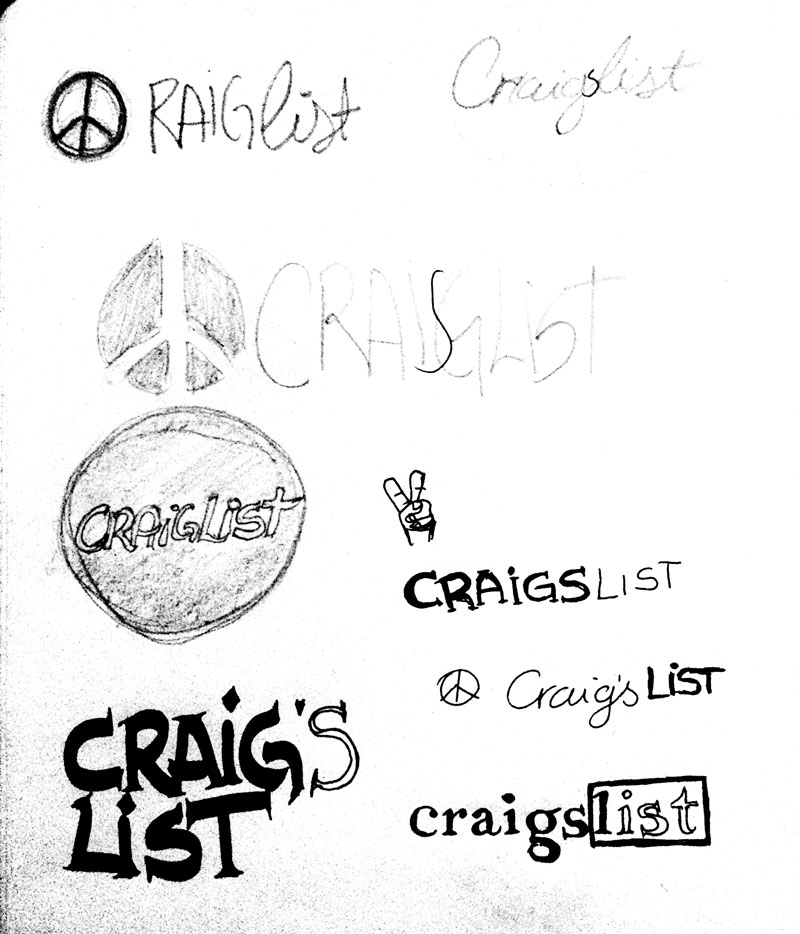 RAIGlist
Craigslist
CRAIGSLIST
CRAIGLIST
CRAiGSLIST
Craig'sLiST
CRAiG'S
LiST
craigslist